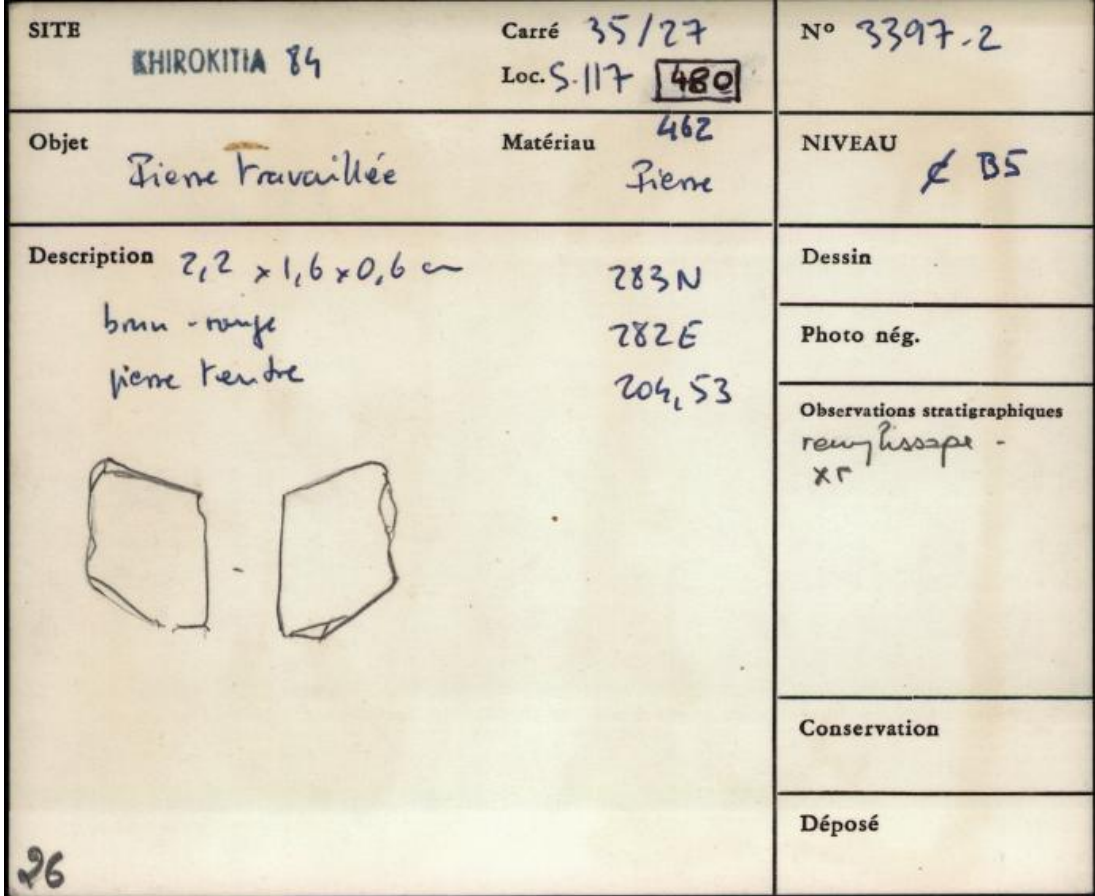 SITE
KHIROKITIA 84
Carré 35/27
Loc. S.117 480
462
N° 3397.2
Objet
Pierre travaillée
Matériau
Pierre
NIVEAU
B5
Description 2,2 x 1,6 x 0,6 cm
brun-rouge
pierre tendre
283N
282E
204,53
Dessin
Photo nég.
Observations stratigraphiques
remplissage -
xr
Conservation
Déposé
26